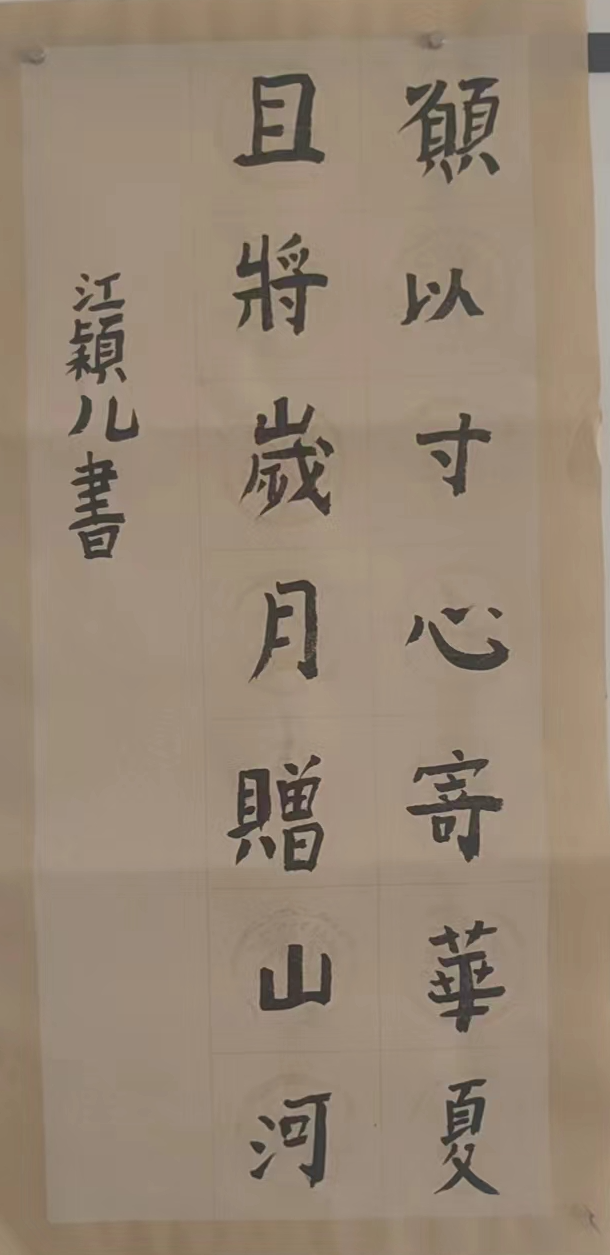 願以寸心寄華夏
且將歲月贈山河
江穎儿書